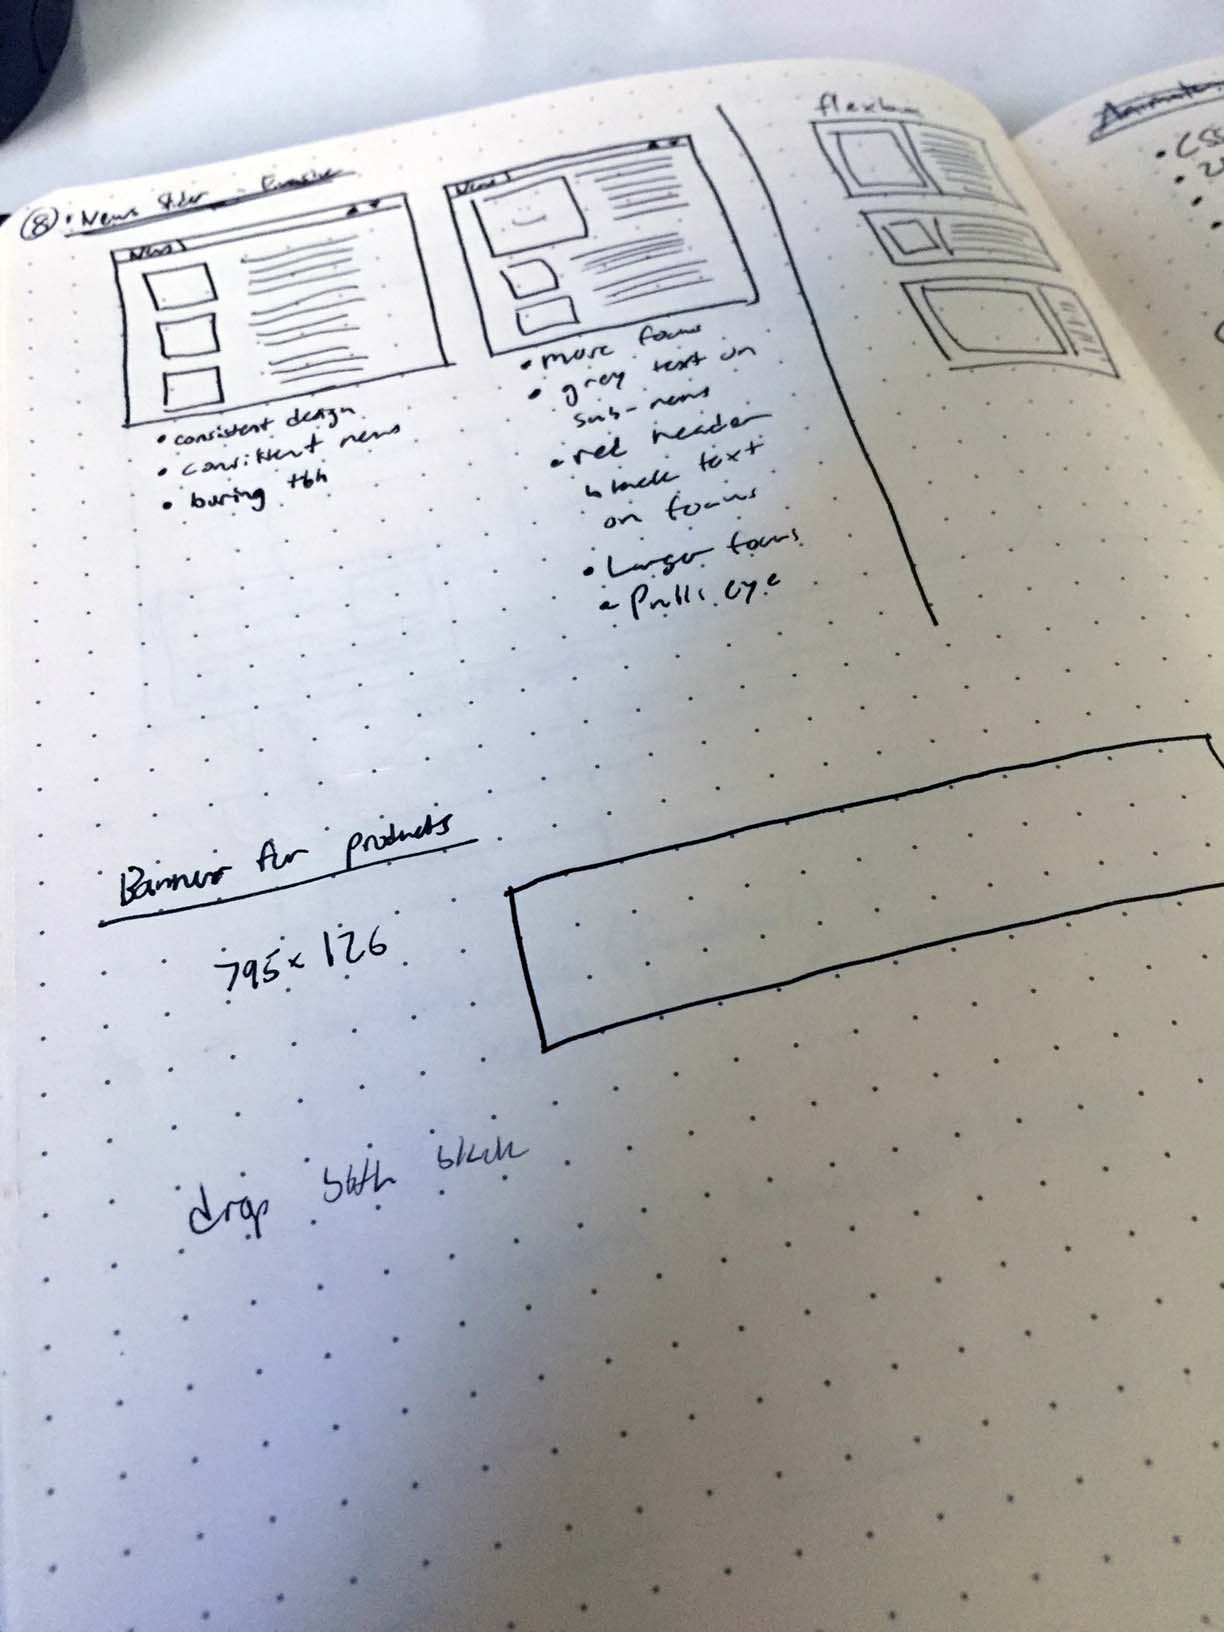 8
• News
News
• consistent design
• consistent news
• boring tbh
News
• more focus
• grey text on
sub-news
• red header
black text
on focus
• Larger focus
• Pulls eye
flexbox
TEXT
Banner for products
795 x 126
drop both black
• CSS